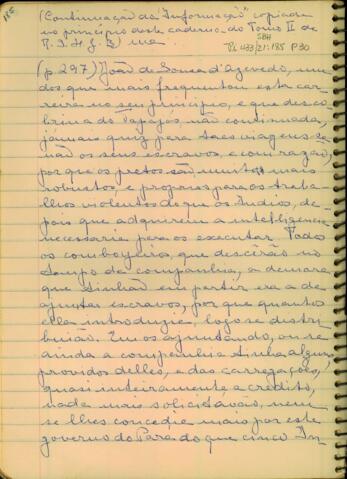 185
(Continuação da "Informação" copiada
no princípio deste caderno do Tomo II da
R.I.H.G.B) ver
SBH
Pi 433/21:185 P30
(p 297) João de Sousa d'Azevedo, um
dos que mais frequentou esta car-
reira no seu principio, e que desco-
brio a do Tapajós não continuada,
jámais quiz para taes viagens se-
não os seus escravos, e com razão,
por que os pretos são muito mais
robustos, e proprios para os traba-
lhos violentos do que os Indios, de-
pois que adquirem a intelligencia
necessaria para os executar. Todos
os comboyeiros, que descêrão no
tempo da companhia, a demora
que tinhão em partir era a de
ajuntar escravos, por que quantos
ella introduzia, logo se distri-
buião. Emos ajuntando, ou se
ainda a companhia tinha alguns
providos delles, e das carregações,
quasi inteiramente a credito,
nada mais solicitavão, nem
se lhes concedia mais por este
governo do Pará do que cinco In-